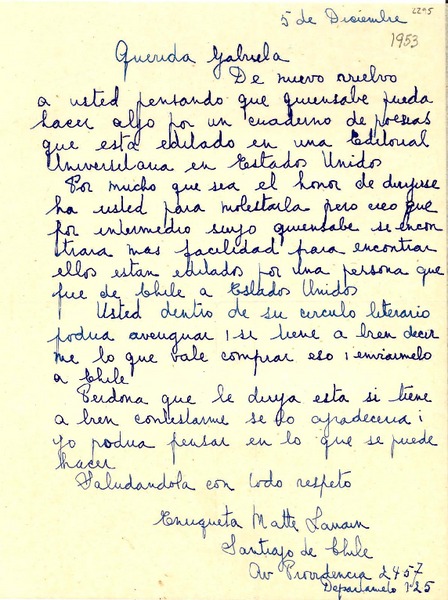 2295
5 de Diciembre
1953
Querida Gabriela
De nuevo vuelvo
a usted pensando que quiensabe pueda
hacer algo por un cuaderno de poesias
que está editado en una Editorial
Universitaria en Estados Unidos
Por mucho que sea el honor de dirijirse
ha usted para molestarla pero creo que
por intermedio suyo quiensabe se encon
trara mas facilidad para encontrar
ellos estan editados por una persona que
fue de Chile a Estados Unidos
Usted dentro de su circulo literario
podria averiguar i si tiene a bien decir
me lo que vale comprar eso i enviarmelo
a Chile
Perdona que le dirija esta si tiene
a bien contestarme se lo agradeceria i
yo podria pensar en lo que se puede
hacer
Saludandola con todo respeto
Enriqueta Matte
Santiago de Chile
Av Providencia 2457
Departamento 25